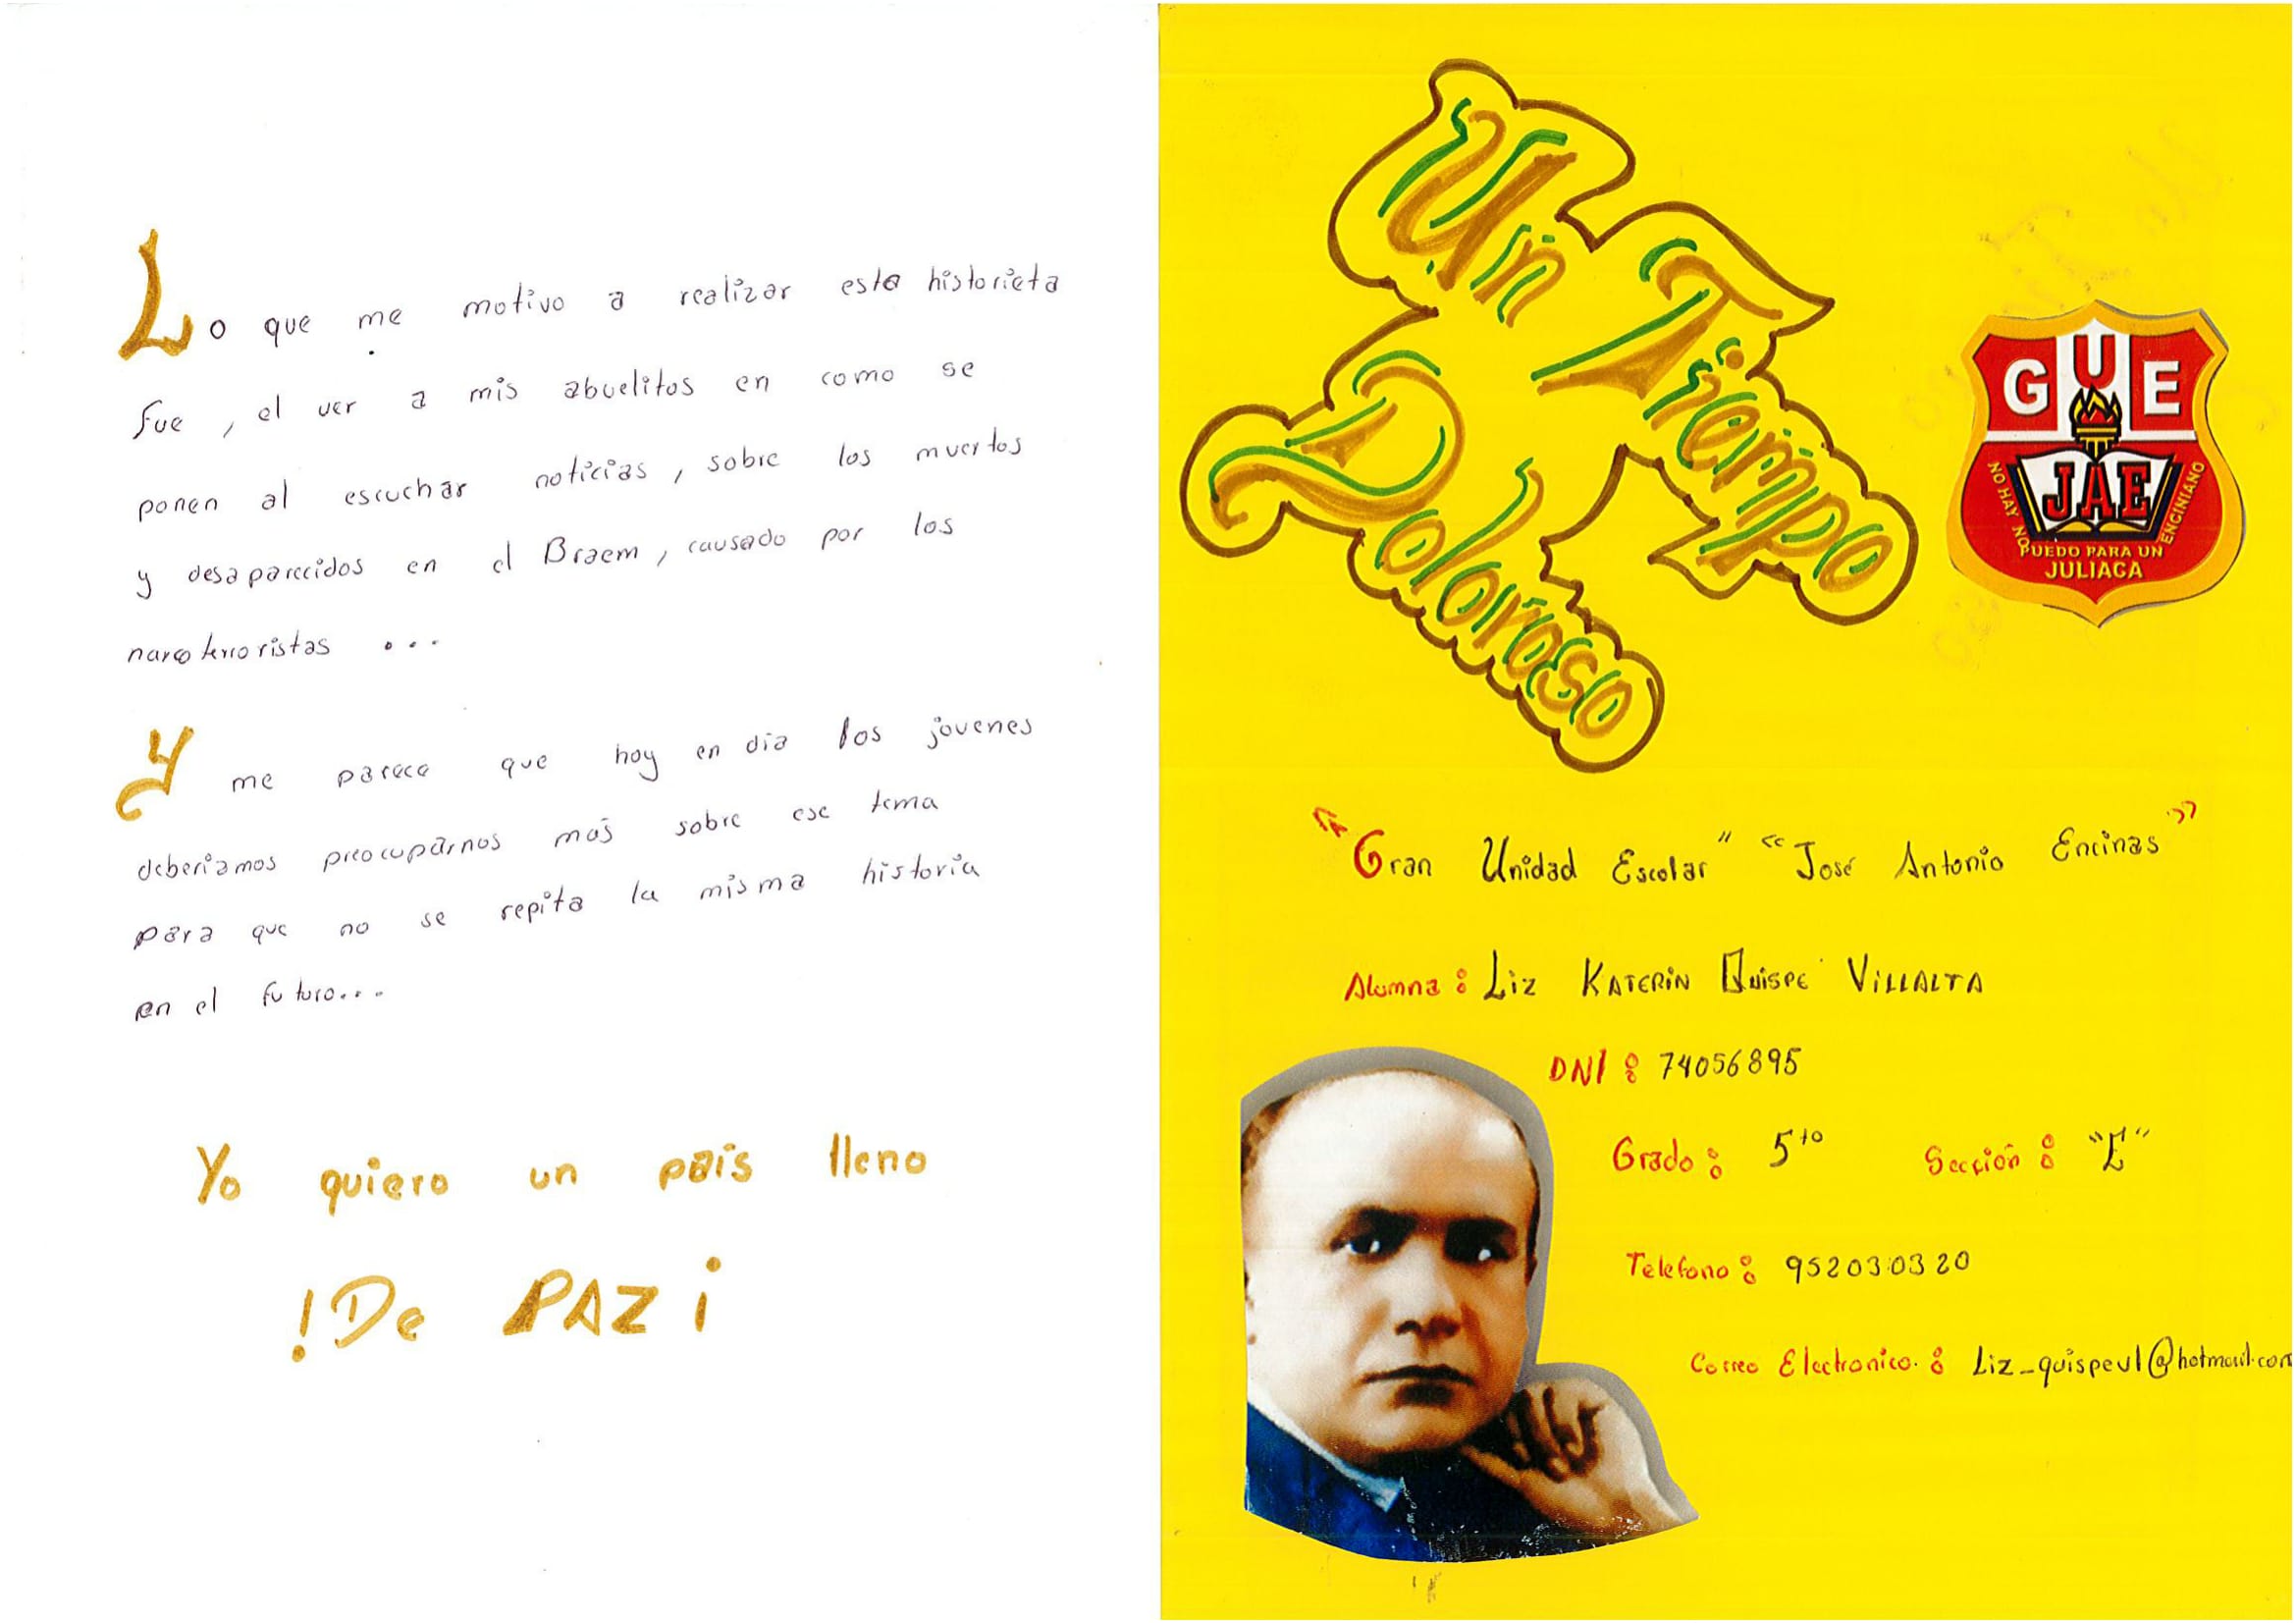 Lo que me motivo a realizar esta historieta
fue, el ver a mis abuelitos en como se
ponen al escuchar noticias, sobre los muertos
y desaparecidos en el Braem, causado por los
narcoterroristas ...
Y me parece que hoy en dia los jovenes
deberiamos preocuparnos más sobre ese tema
para que no se repita la misma historia
en el futuro...
Yo quiero un pais lleno
!De PAZ¡
Un Tiempo
Doloroso
GUE
JAE
NO HAY NO PUEDO PARA UN ENCINIANO
JULIACA
"Gran Unidad Escolar" "José Antonio Encinas"
Alumna: Liz KATERIN QUISPE VILLALTA
DNI: 74056895
Grado: 5to Sección: "E"
Telefono: 952030320
Correo Electronico: Liz_quispevl@hotmail.com